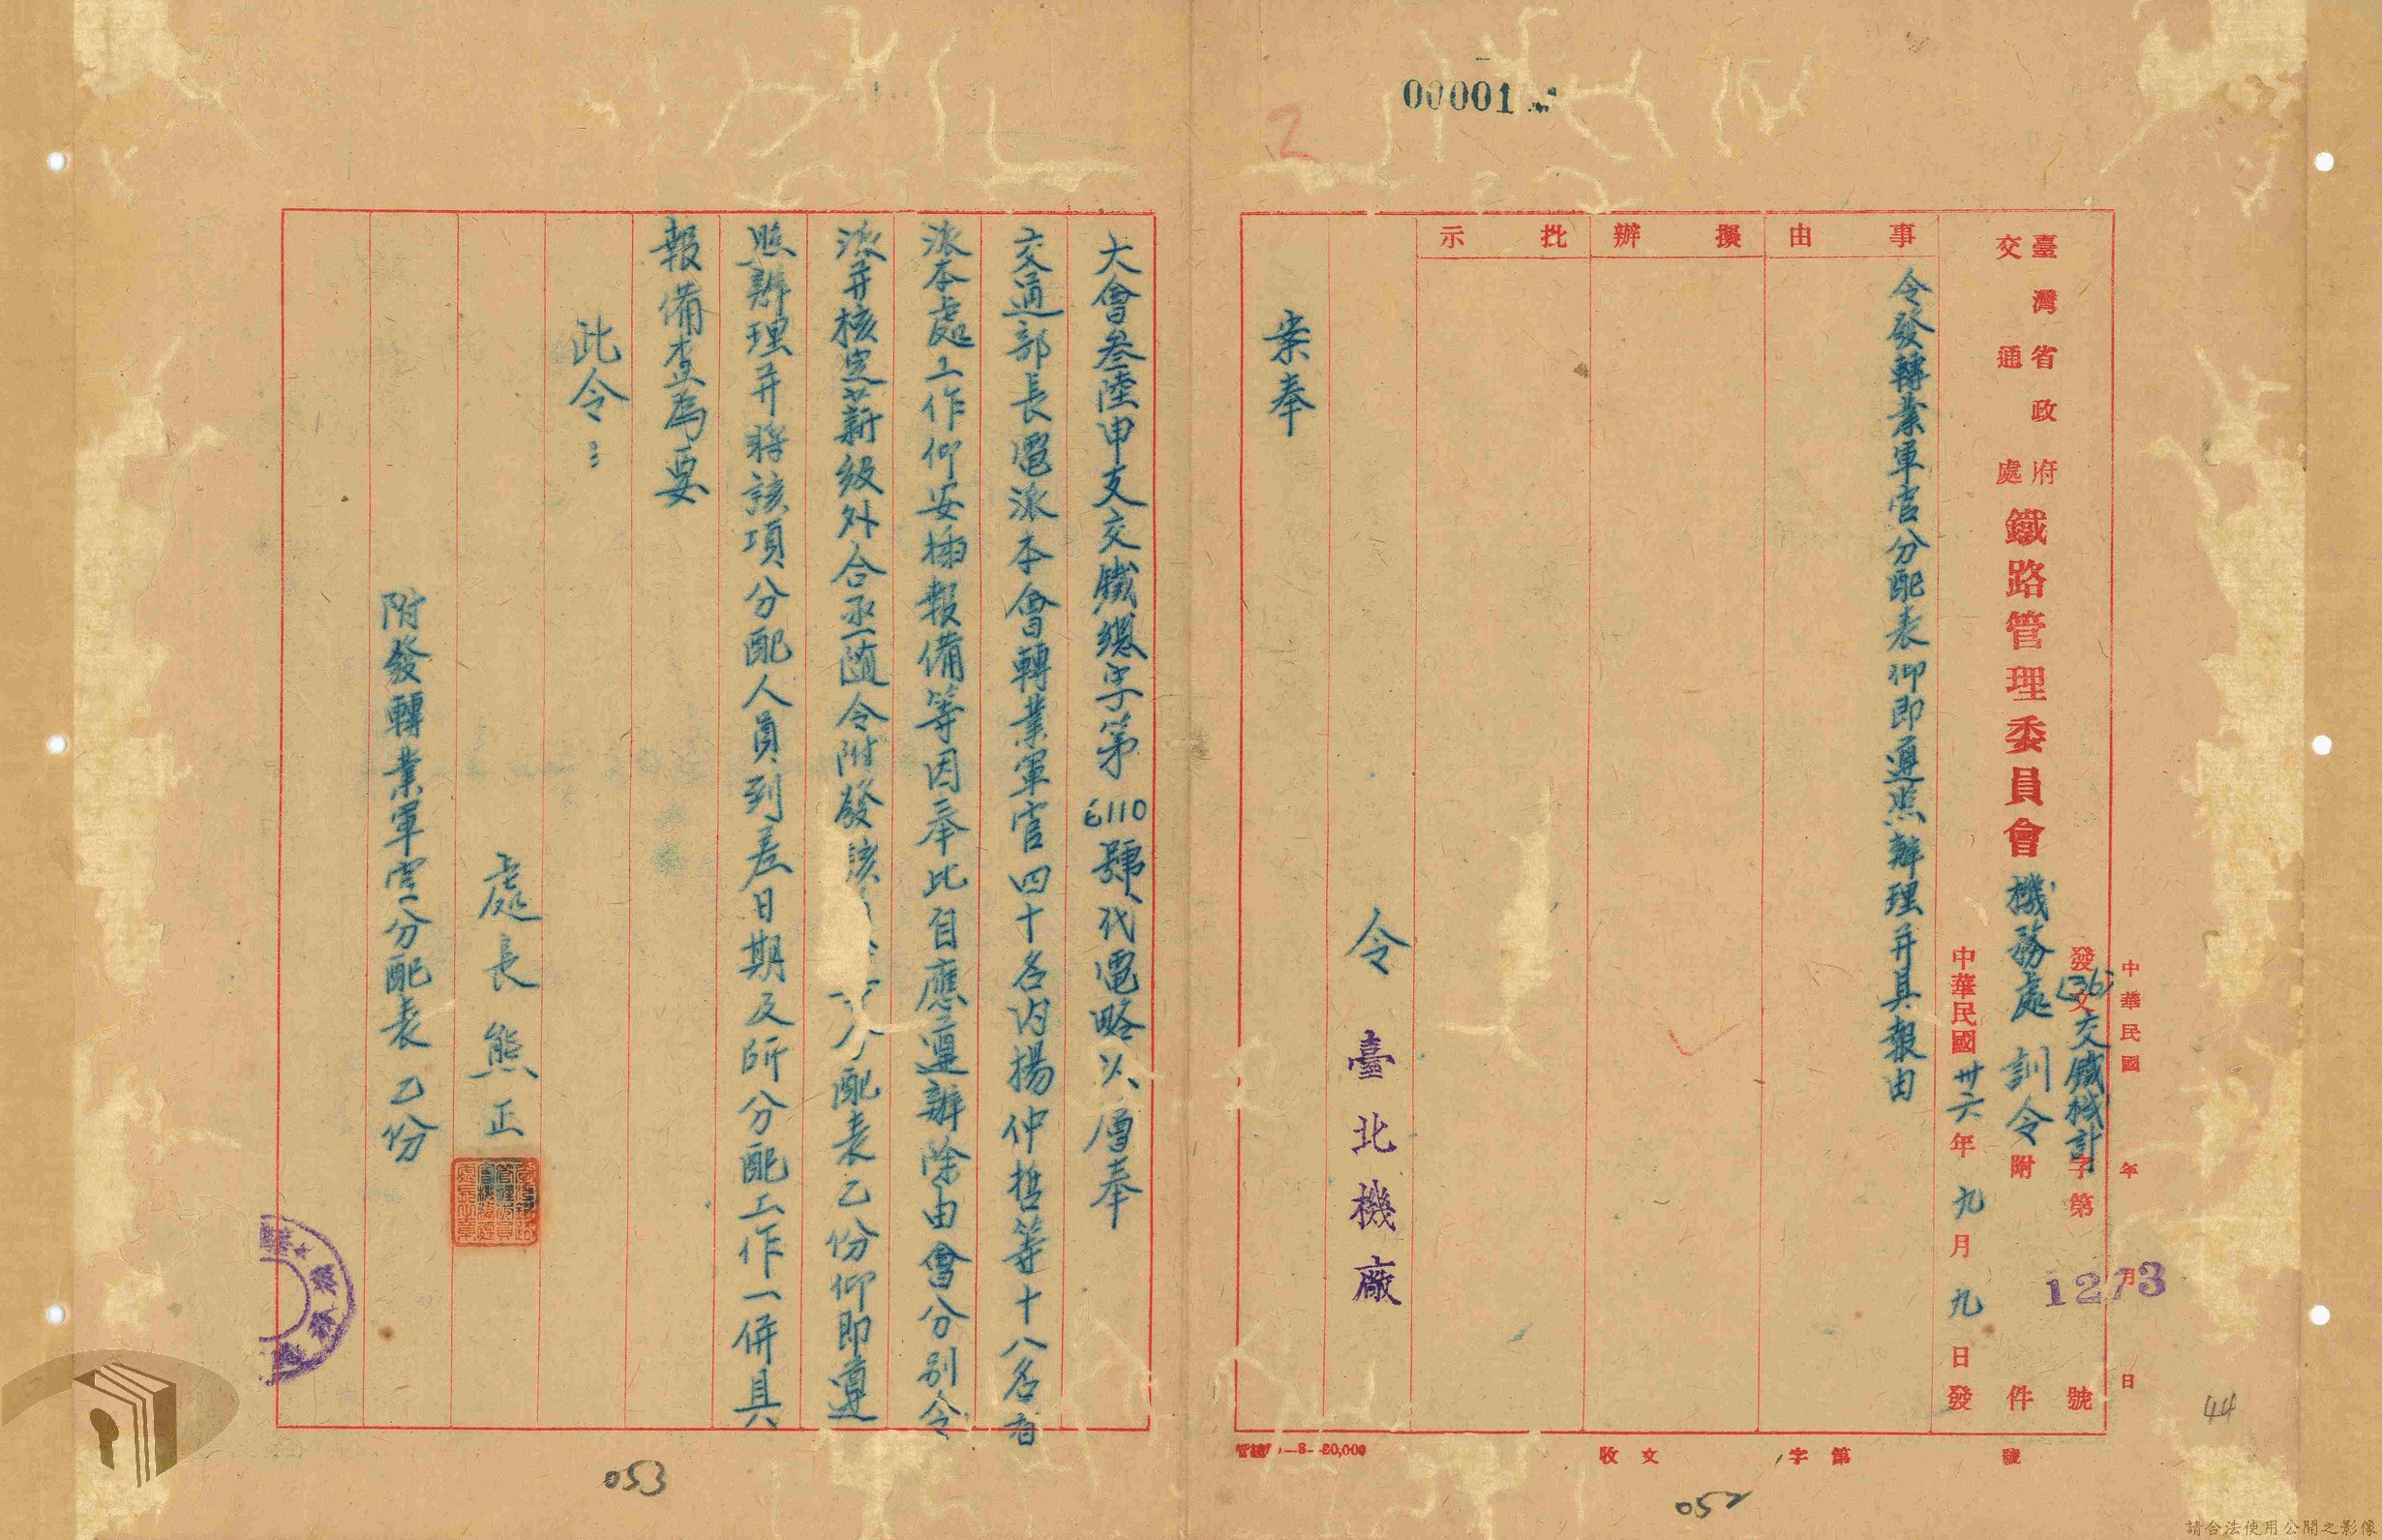 00001
2
臺灣省政府
交通處
鐵路管理委員會機務處訓令
中華民國 年 月 日
發文(36)交鐵機計字第1273號
附件
中華民國卅六年九月九日發
事由
令發轉業軍官分配表仰即遵照辦理并具報由
擬辦
批示
令 臺北機廠
案奉
收文 字第 號
—8—20,000
052
44
大會叁陸申支交鐵總字第6110號代電略以層奉
交通部長電派本會轉業軍官四十名內揚仲哲等十八名
派本處工作仰安插報備等因奉此自應遵辦除由會分別令
派并核定薪級外合亟隨令附發該 分配表乙份仰即遵
照辦理并將該項分配人員到差日期及所分配工作一併具
報備查為要
此令
處長熊正
附發轉業軍官分配表乙份
053
請合法使用公開之影像